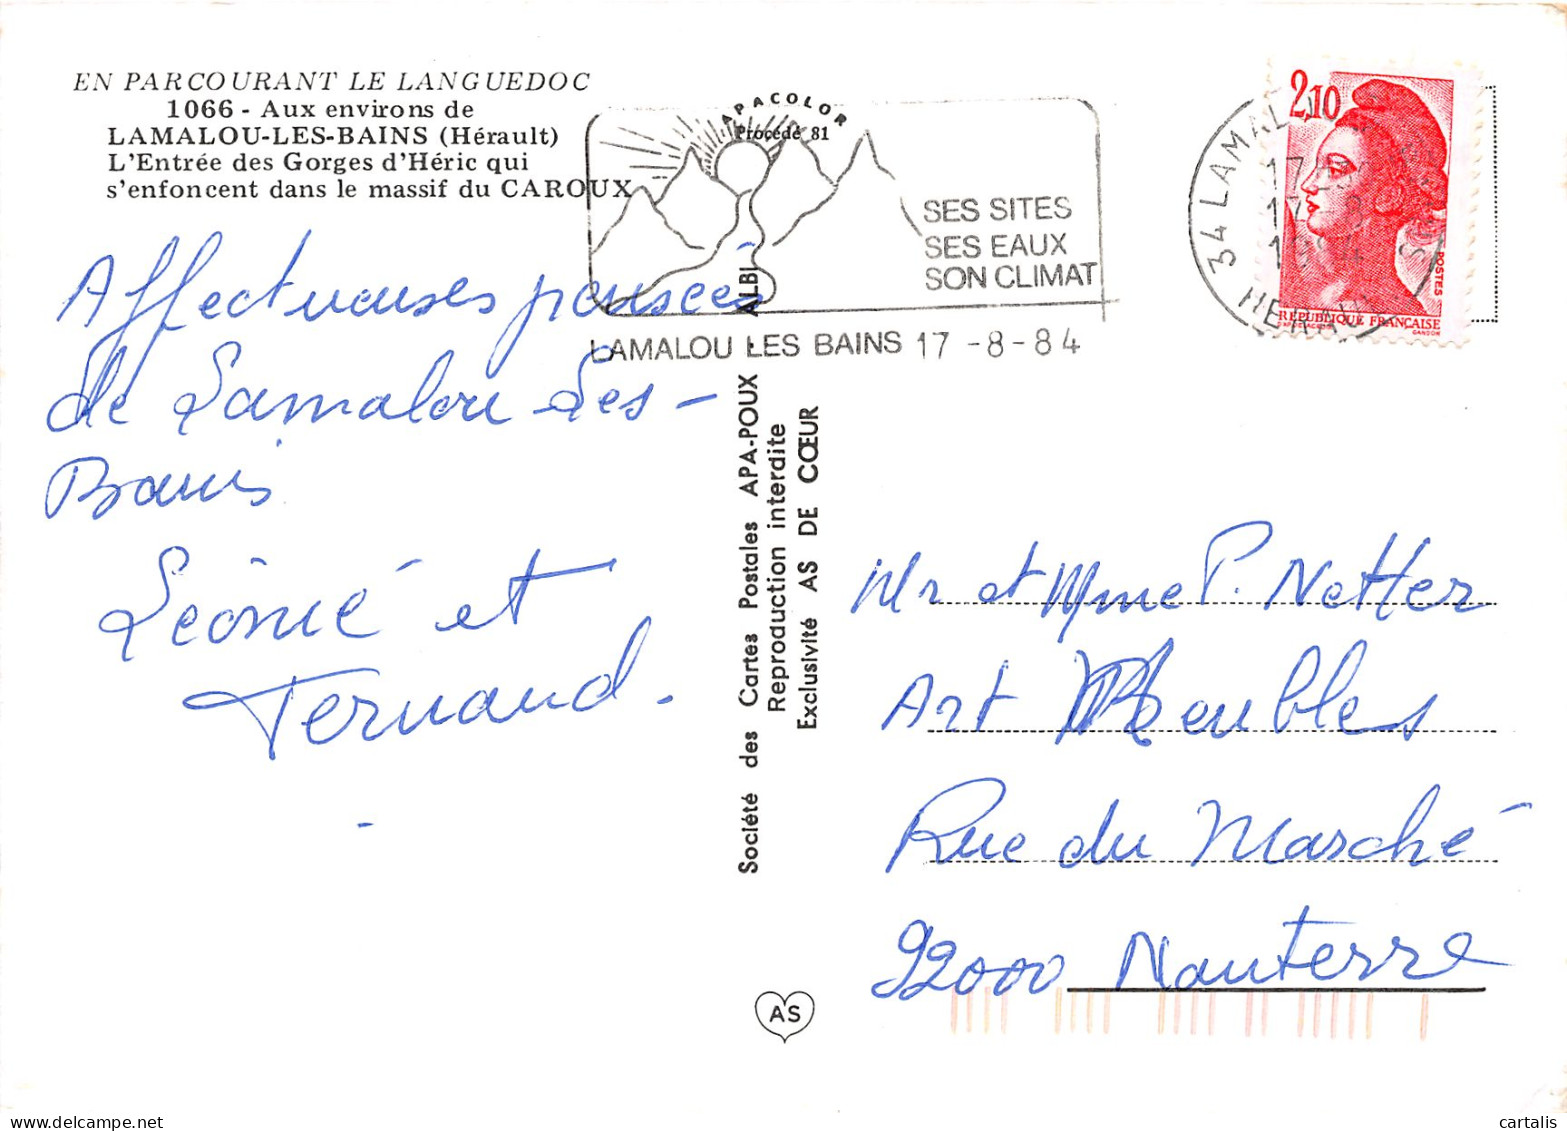 EN PARCOURANT LE LANGUEDOC
1066 - Aux environs de
LAMALOU-LES-BAINS (Hérault)
L'Entrée des Gorges d'Héric qui
s'enfoncent dans le massif du CAROUX
APACOLOR
Procédé 81
SES SITES
SES EAUX
SON CLIMAT
LAMALOU LES BAINS 17 -8-84
34 LAMALOU
17
17 -8
1984
HERAULT
2,10
POSTES
RÉPUBLIQUE FRANÇAISE
GANDON
Affectueuses pensées
de Lamalou-Les-
Bains
Léonie et
Fernand.
Société des Cartes Postales APA-POUX - ALBI
Reproduction interdite
Exclusivité AS DE CŒUR
AS
Mr et Mme P. Netter
Art Meubles
Rue du Marché
92000 Nanterre
cartalis